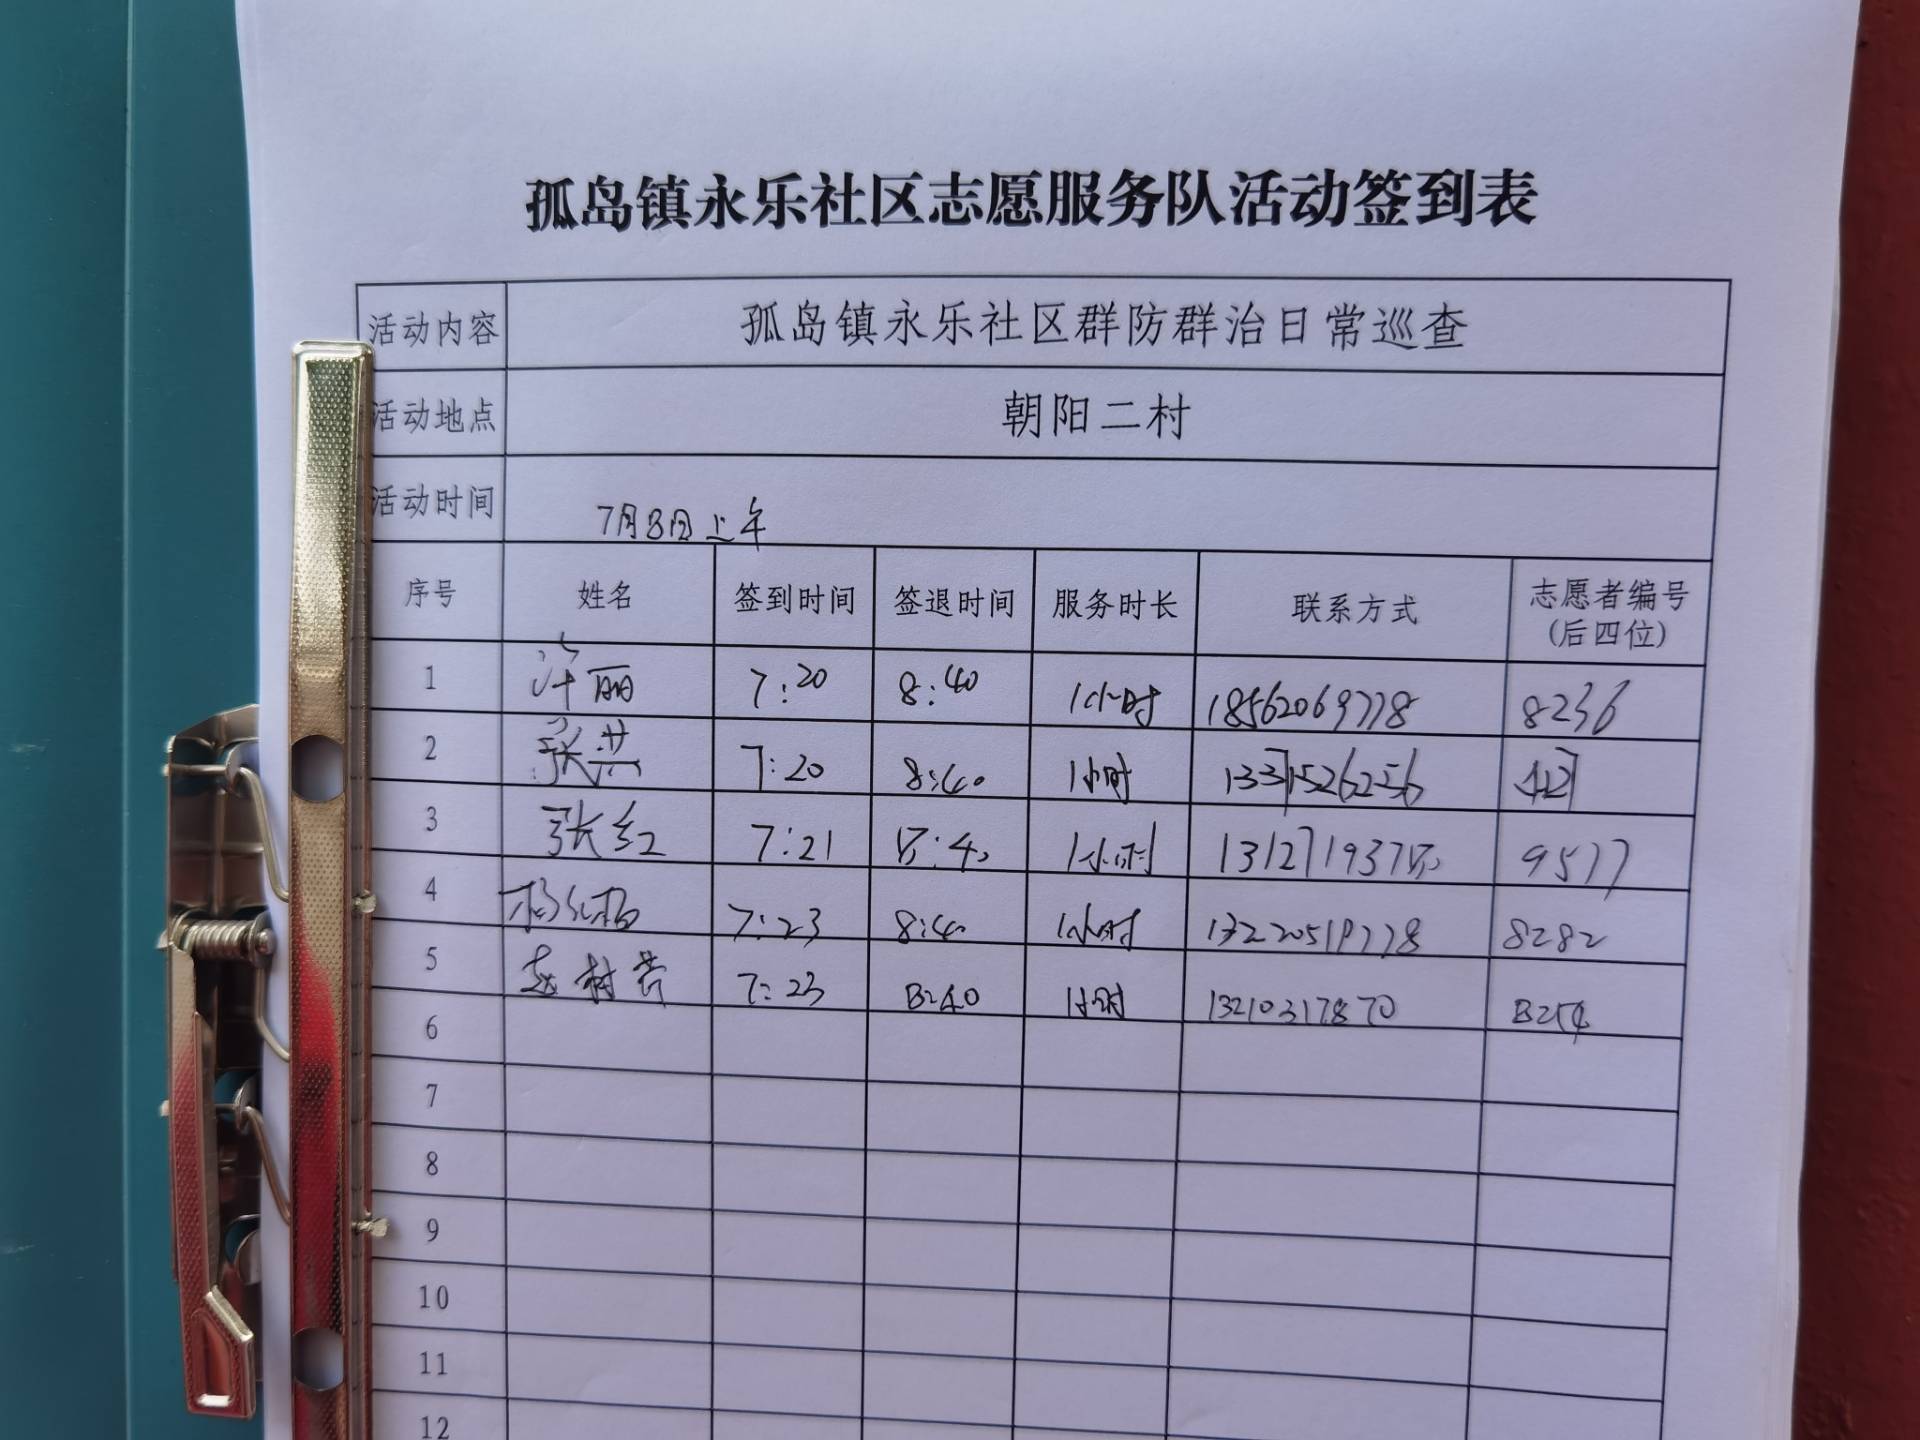 孤岛镇永乐社区志愿服务队活动签到表
活动内容 孤岛镇永乐社区群防群治日常巡查
活动地点 朝阳二村
活动时间 7月8日上午
序号 姓名 签到时间 签退时间 服务时长 联系方式 志愿者编号
(后四位)
1 许丽 7:20 8:40 1小时 18562069778 8236
2 张英 7:20 8:40 1小时 13371526256
3 张红 7:21 8:40 1小时 9577
4 7:23 8:40 1小时 13220519778 8282
5 赵树芳 7:23 8:40 1小时 13210317870 8254
6
7
8
9
10
11
12